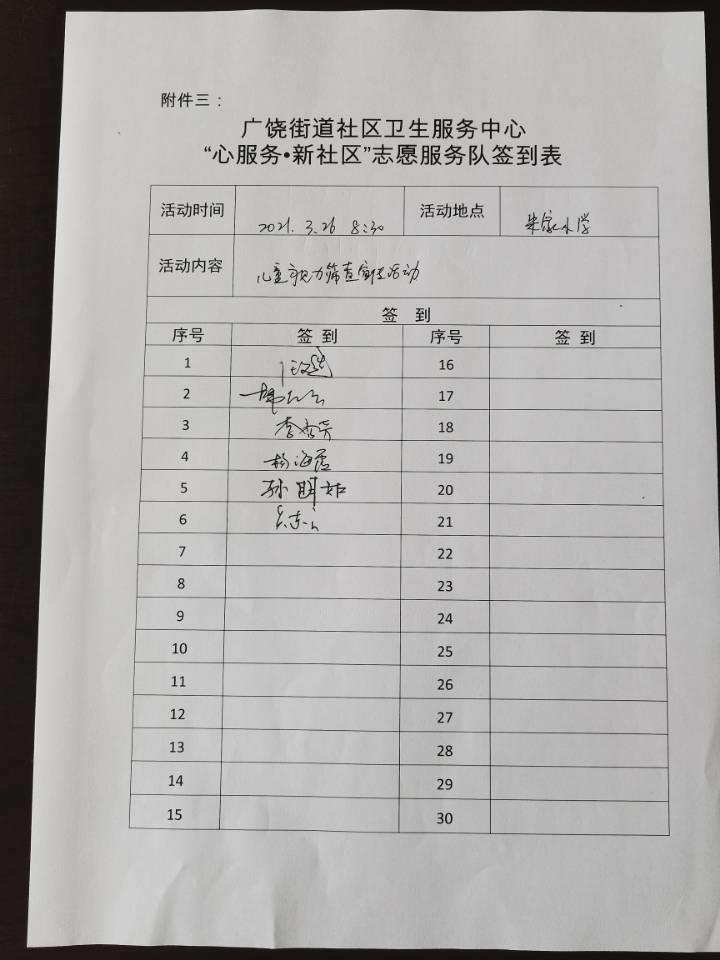 附件三：
广饶街道社区卫生服务中心
“心服务•新社区”志愿服务队签到表
活动时间 2021.3.26 8:30 活动地点 朱家小学
活动内容 儿童视力筛查宣传活动
签 到
序号 签 到 序号 签 到
1 16
2 17
3 李秀芳 18
4 杨海霞 19
5 孙明茹 20
6 21
7 22
8 23
9 24
10 25
11 26
12 27
13 28
14 29
15 30